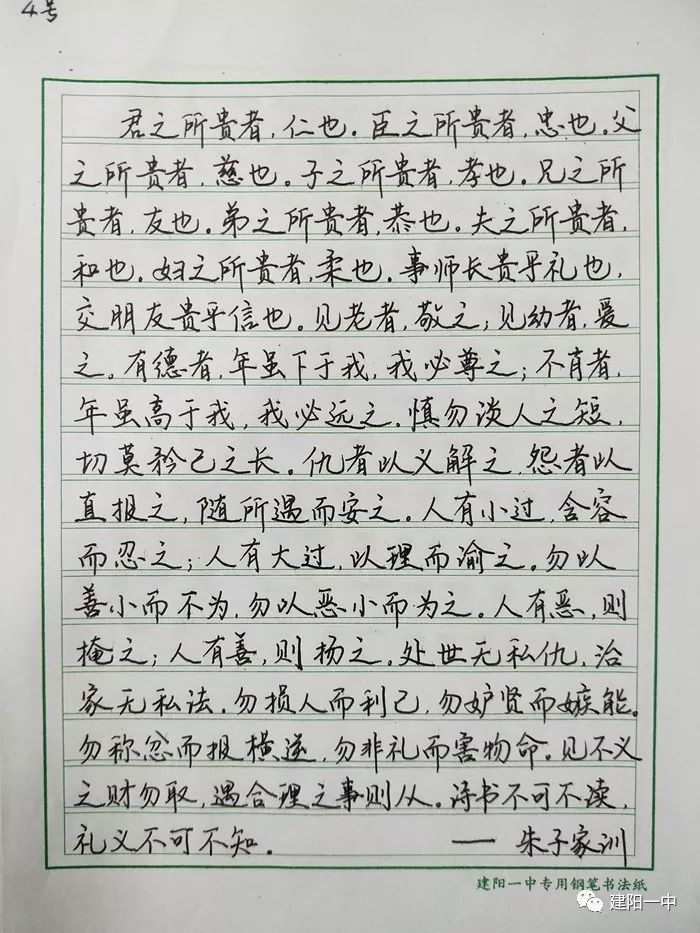 4号
君之所贵者,仁也.臣之所贵者,忠也.父
之所贵者,慈也.子之所贵者,孝也.兄之所
贵者,友也.弟之所贵者,恭也.夫之所贵者,
和也.妇之所贵者,柔也.事师长贵乎礼也,
交朋友贵乎信也.见老者,敬之;见幼者,爱
之.有德者,年虽下于我,我必尊之;不肖者,
年虽高于我,我必远之.慎勿谈人之短,
切莫矜己之长.仇者以义解之,怨者以
直报之,随所遇而安之.人有小过,含容
而忍之;人有大过,以理而谕之.勿以
善小而不为,勿以恶小而为之.人有恶,则
掩之;人有善,则扬之.处世无私仇,治
家无私法.勿损人而利己,勿妒贤而嫉能.
勿称忿而报横逆,勿非礼而害物命.见不义
之财勿取,遇合理之事则从.诗书不可不读,
礼义不可不知.
——朱子家训
建阳一中专用钢笔书法纸
建阳一中